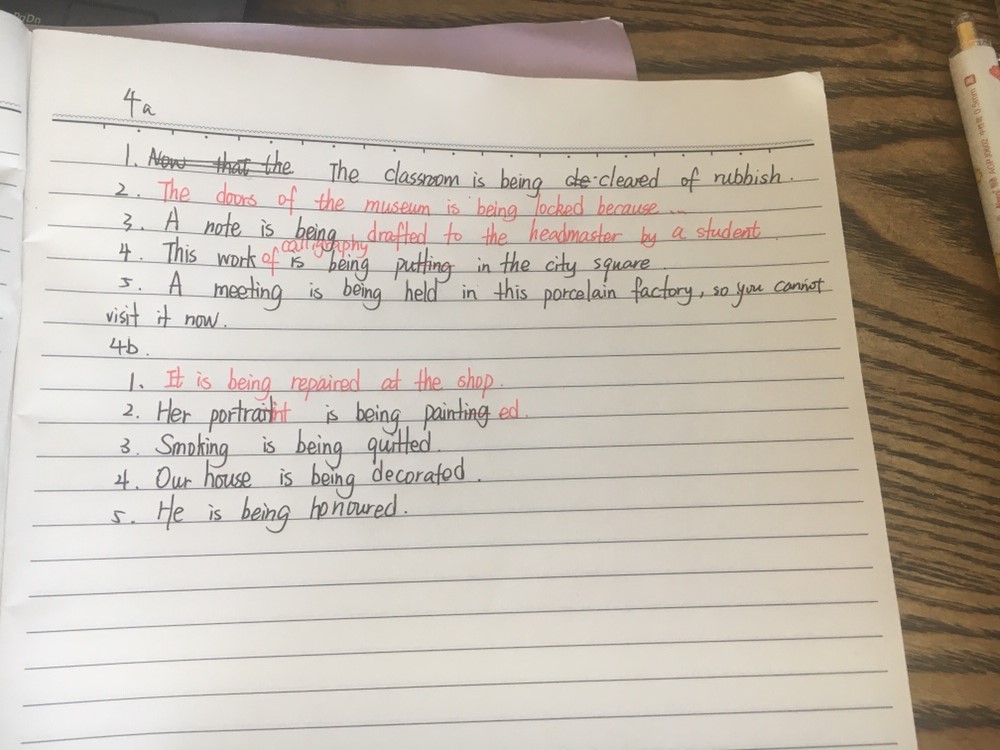 PgDn
4a
1. Now that the The classroom is being de cleared of rubbish.
2. The doors of the museum is being locked because ...
3. A note is being drafted to the headmaster by a student
4. This work of calligraphy is being putting in the city square
5. A meeting is being held in this porcelain factory, so you cannot
visit it now.
4b.
1. It is being repaired at the shop.
2. Her portrait is being painting ed.
3. Smoking is being quitted.
4. Our house is being decorated.
5. He is being honoured.